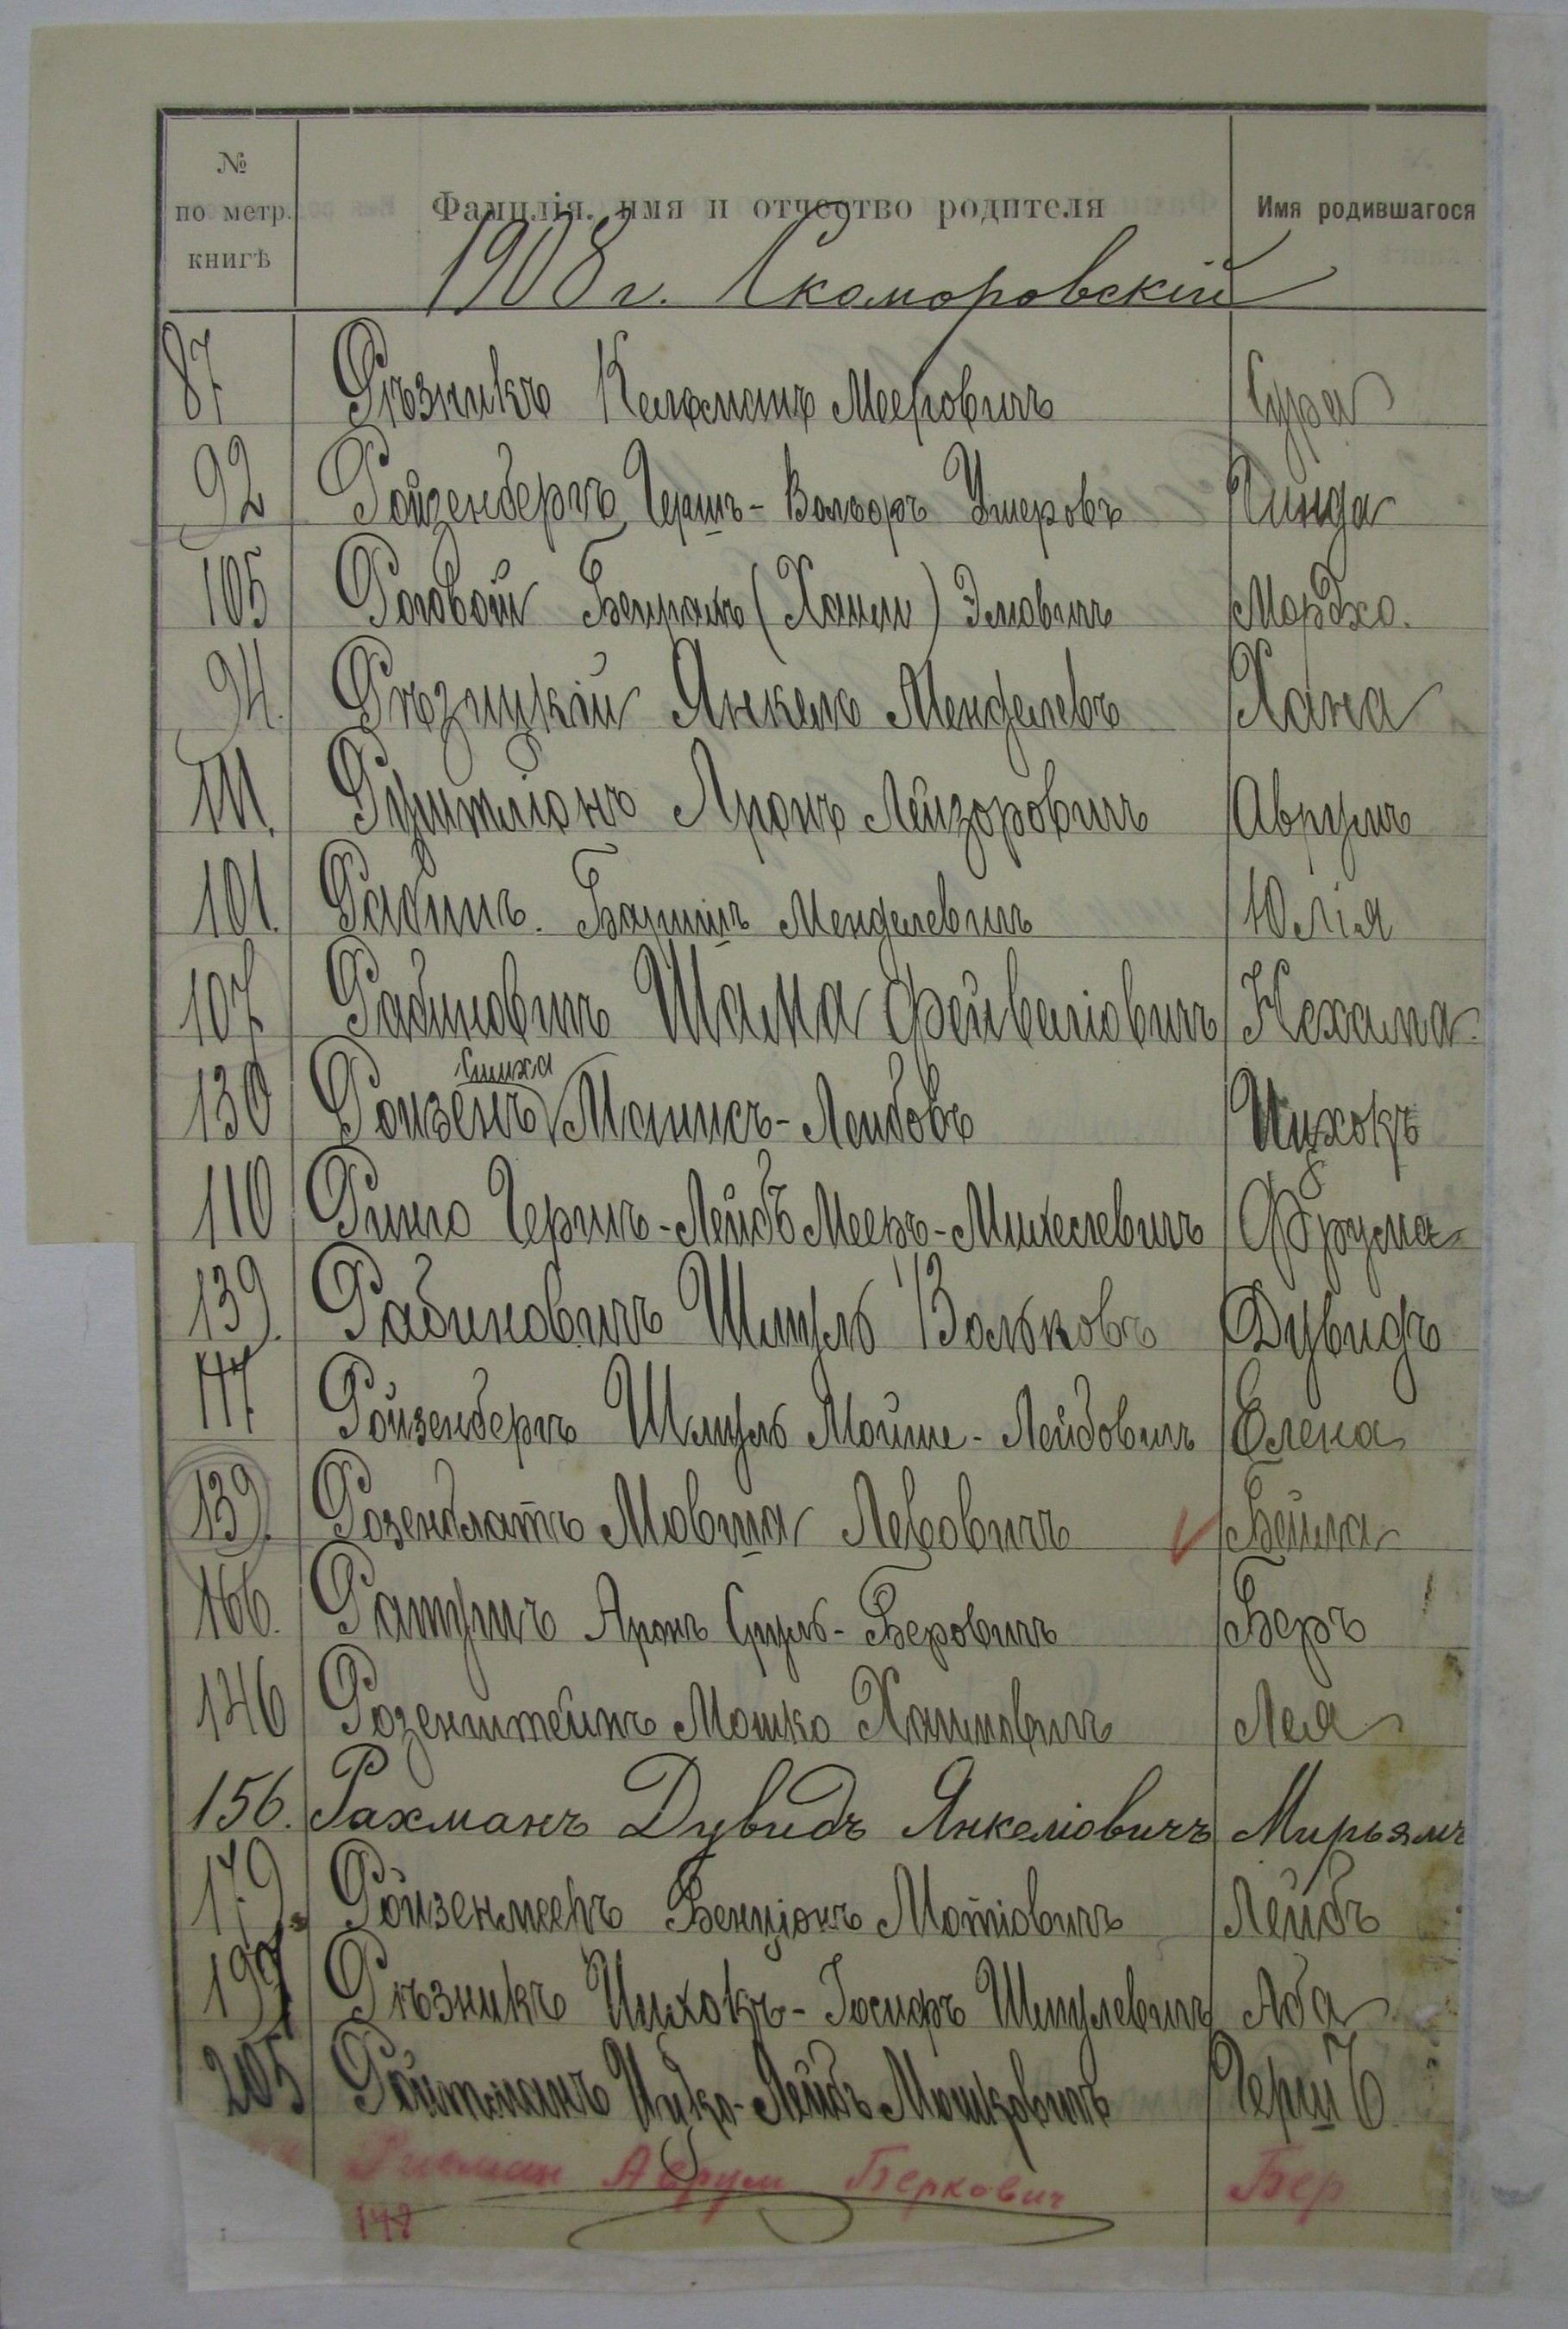 № по метр. книгѣ Фамилія, имя и отчество родителя Имя родившагося
1908 г. Скоморовскій
87 Рѣзникъ Келманъ Мееровичъ Сура
92 Ройзенбергъ Гершъ-Вольфъ Ушеровъ Гинда
105 Роговой (Хаим) Мордхо.
94. Рѣзицкій Янкель Менделевъ Хана
111. Аронъ Лейзоровичъ Аврумъ
101. Рабинъ. Менделевичъ Юлія
107 Рабиновичъ Шама Фейвеліовичъ Нехама.
130 Ройзенъ Симха Манисъ-Лейбовъ Ицхокъ
110 Ринго Гершъ-Лейбъ Мееръ-Михелевичъ Фрума
139. Рабиновичъ Шмуль Вольковъ Дувидъ
117. Ройзенбергъ Шмуль Мойше-Лейбовичъ Елена
139. Розенблатъ Мовша Лейбовичъ Бейла
166. Ратушъ Аронъ Сруль-Беровичъ Беръ
146 Розенштейнъ Мошко Хаимовичъ Лея
156. Рахманъ Дувидъ Янкеліовичъ Мирьямъ
179. Ройзенмееръ Бенціонъ Мотіовичъ Лейбъ
199 Рѣзникъ Ицхокъ-Іосифъ Шмулевичъ Аба
205 Ройтманъ Ицко-Лейбъ Мошковичъ Гершъ
Аврум Беркович Бер
148